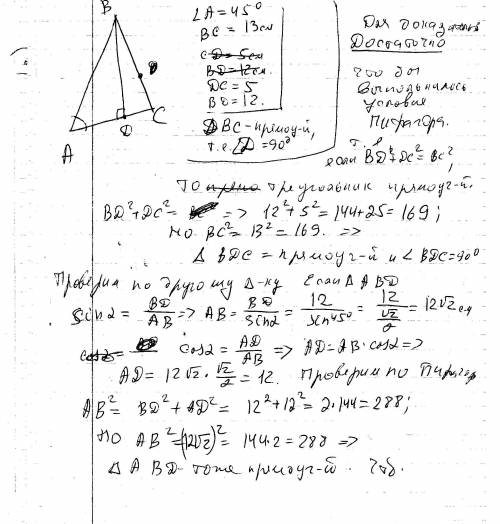 B
∠A = 45°
BC = 13 см
CD = 5 см
BD = 12 см
DC = 5
BD = 12.
ΔBC - прямоуг-й,
т.е. ∠D = 90°
A
D
C
Для
Достаточно
чтобы
выполнилось
условие
Пифагора.
т.е
если BD²+DC² = BC²,
То треугольник прямоуг-й.
BD²+DC² = => 12²+5² = 144+25 = 169;
но BC² = 13² = 169. =>
Δ BDC = прямоуг-й и ∠ BDC = 90°
Проверим по другому Δ-ку Если Δ ABD
sin2 = BD/AB => AB = BD/sin2 = 12/sin45° = 12/(√2/2) = 12√2 см
cos2 = AD cos2 = AD/AB => AD = AB·cos2 =>
AD = 12√2 · √2/2 = 12. Проверим по Пифагор
AB² = BD² + AD² = 12²+12² = 2·144 = 288;
но AB² = (12√2)² = 144·2 = 288 =>
Δ ABD - тоже прямоуг-й. Чтд.